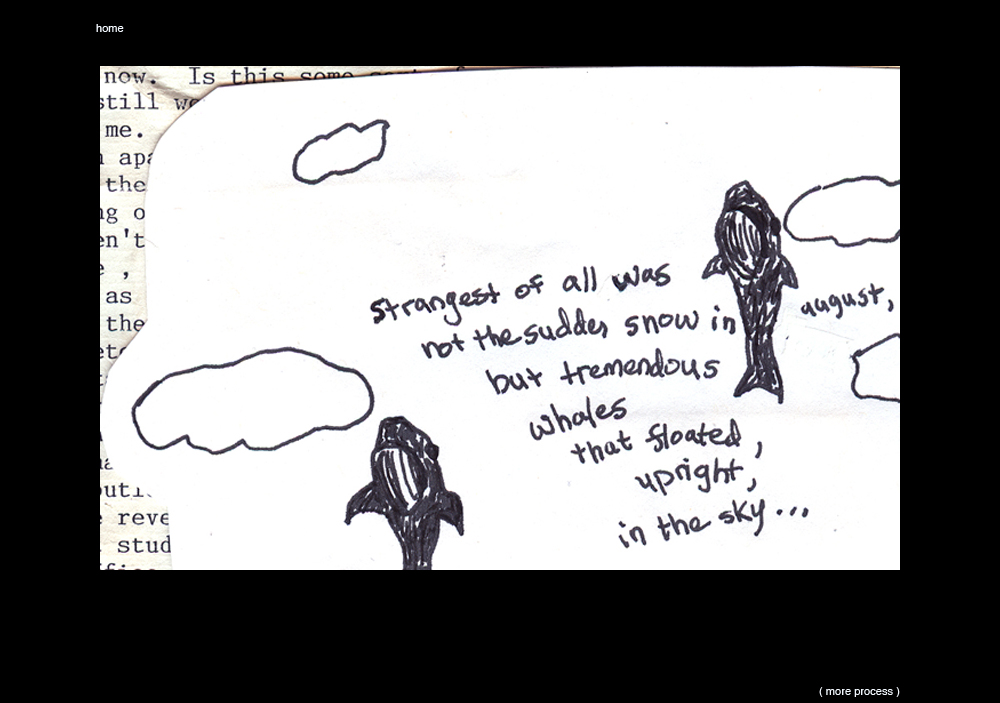 home
now. Is this some
still
me.
the
en't
as
the
reve
stud
strangest of all was
not the sudden snow in august,
but tremendous
whales
that floated,
upright,
in the sky...
( more process )